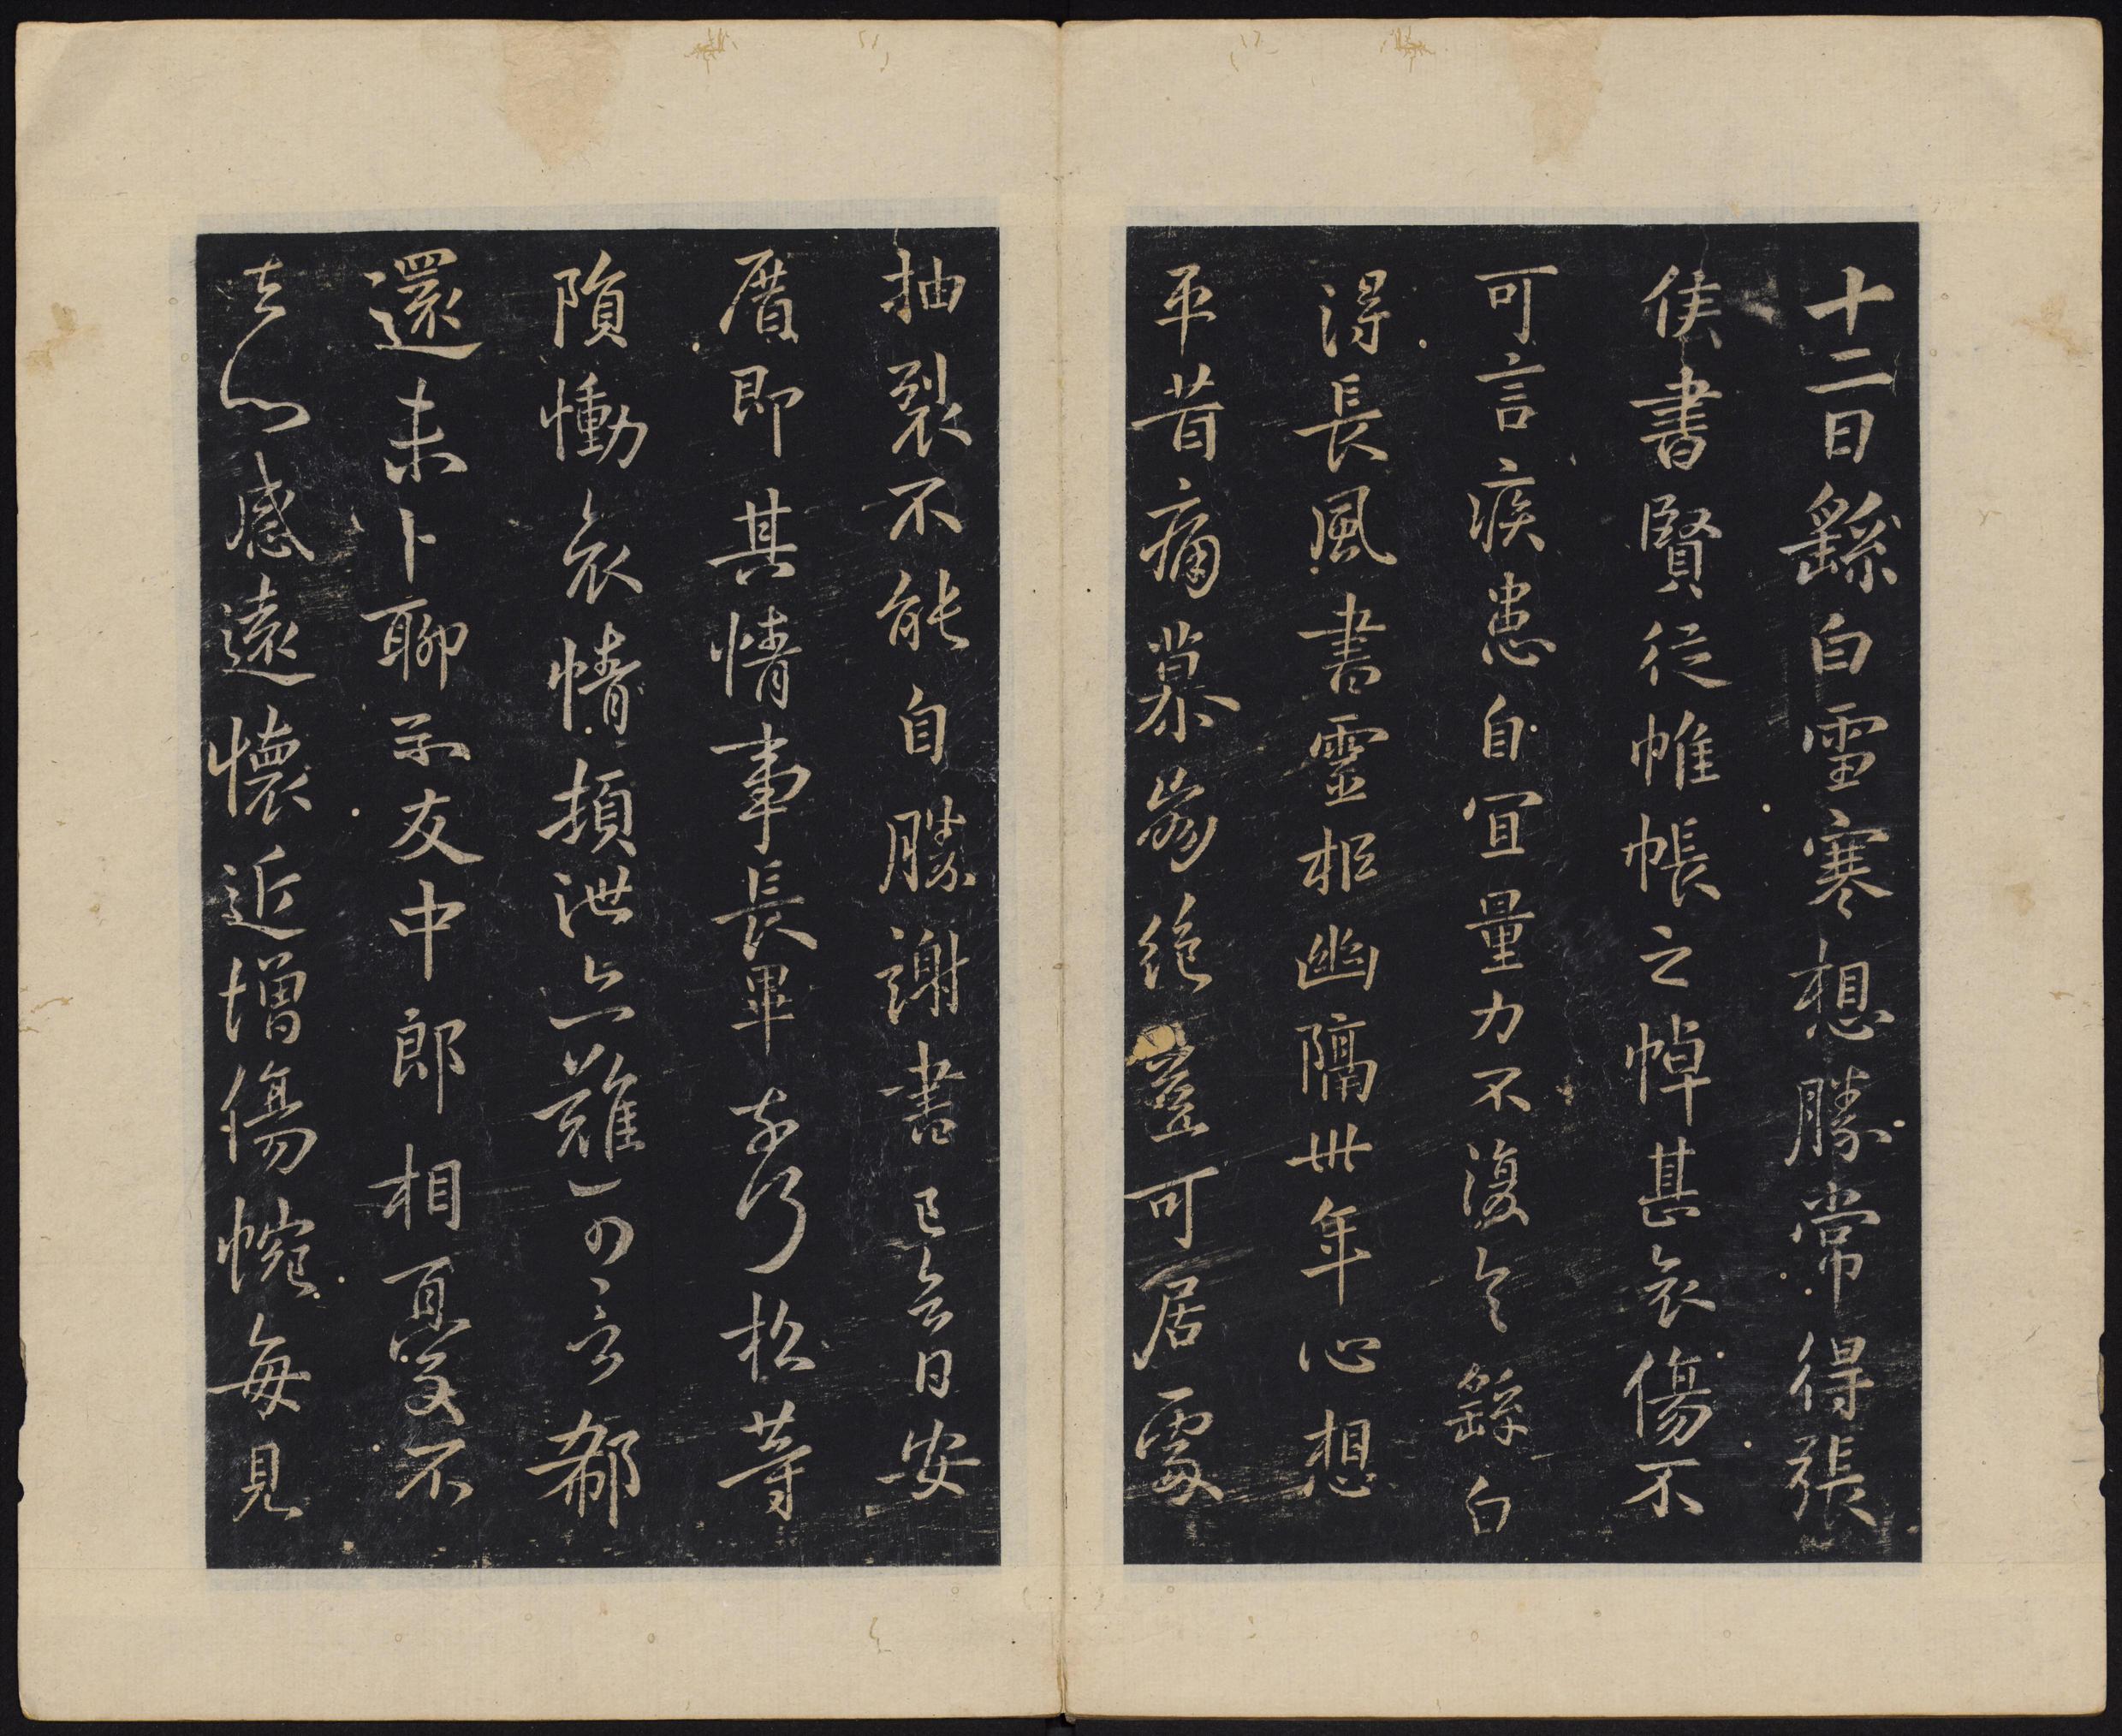 十二日繇白雪寒想勝常得張
侯書賢從帷帳之悼甚哀傷不
可言疾患自宜量力不復具繇白
得長風書靈柩幽隔卅年心想
平昔痛慕崩絕豈可居處
抽裂不能自勝謝書已具日安
厝即其情事長畢往行松等
隕慟哀情頓泄亦難可言郗
還未卜聊示友中郎相憂不
去心感遠懷近增傷惋每見